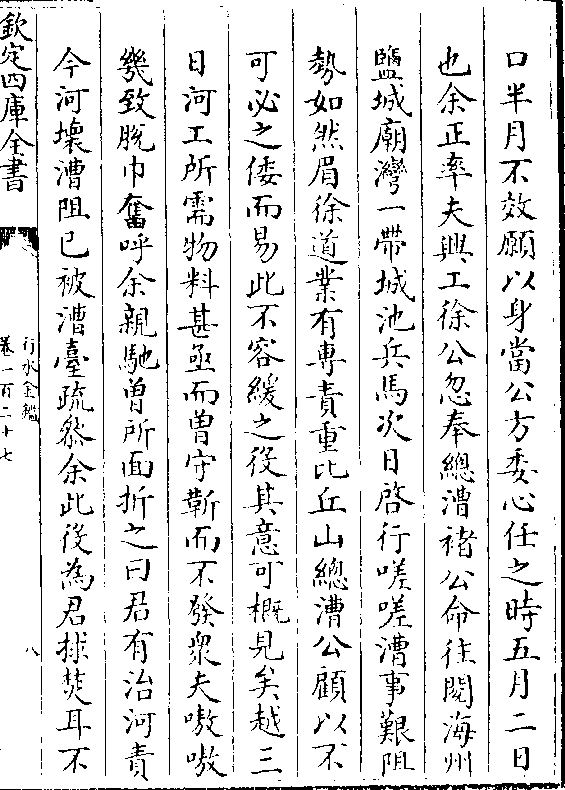 口半月不效願以身當公方委心任之時五月二日
也余正率夫興工徐公忽奉總漕褚公命往閱海州
鹽城廟灣一帶城池兵馬次日啓行嗟嗟漕事艱阻
勢如然眉徐道業有專責重比丘山總漕公顧以不
可必之倭而易此不容緩之役其意可概見矣越三
日河工所需物料甚亟而曾守靳而不發衆夫嗷嗷
幾致脫巾奮呼余親馳曾所面折之曰君有治河責
今河壞漕阻已被漕臺疏叅余此後為君捄焚耳不
欽定四庫全書
行水金鑑
卷一百二十七
八